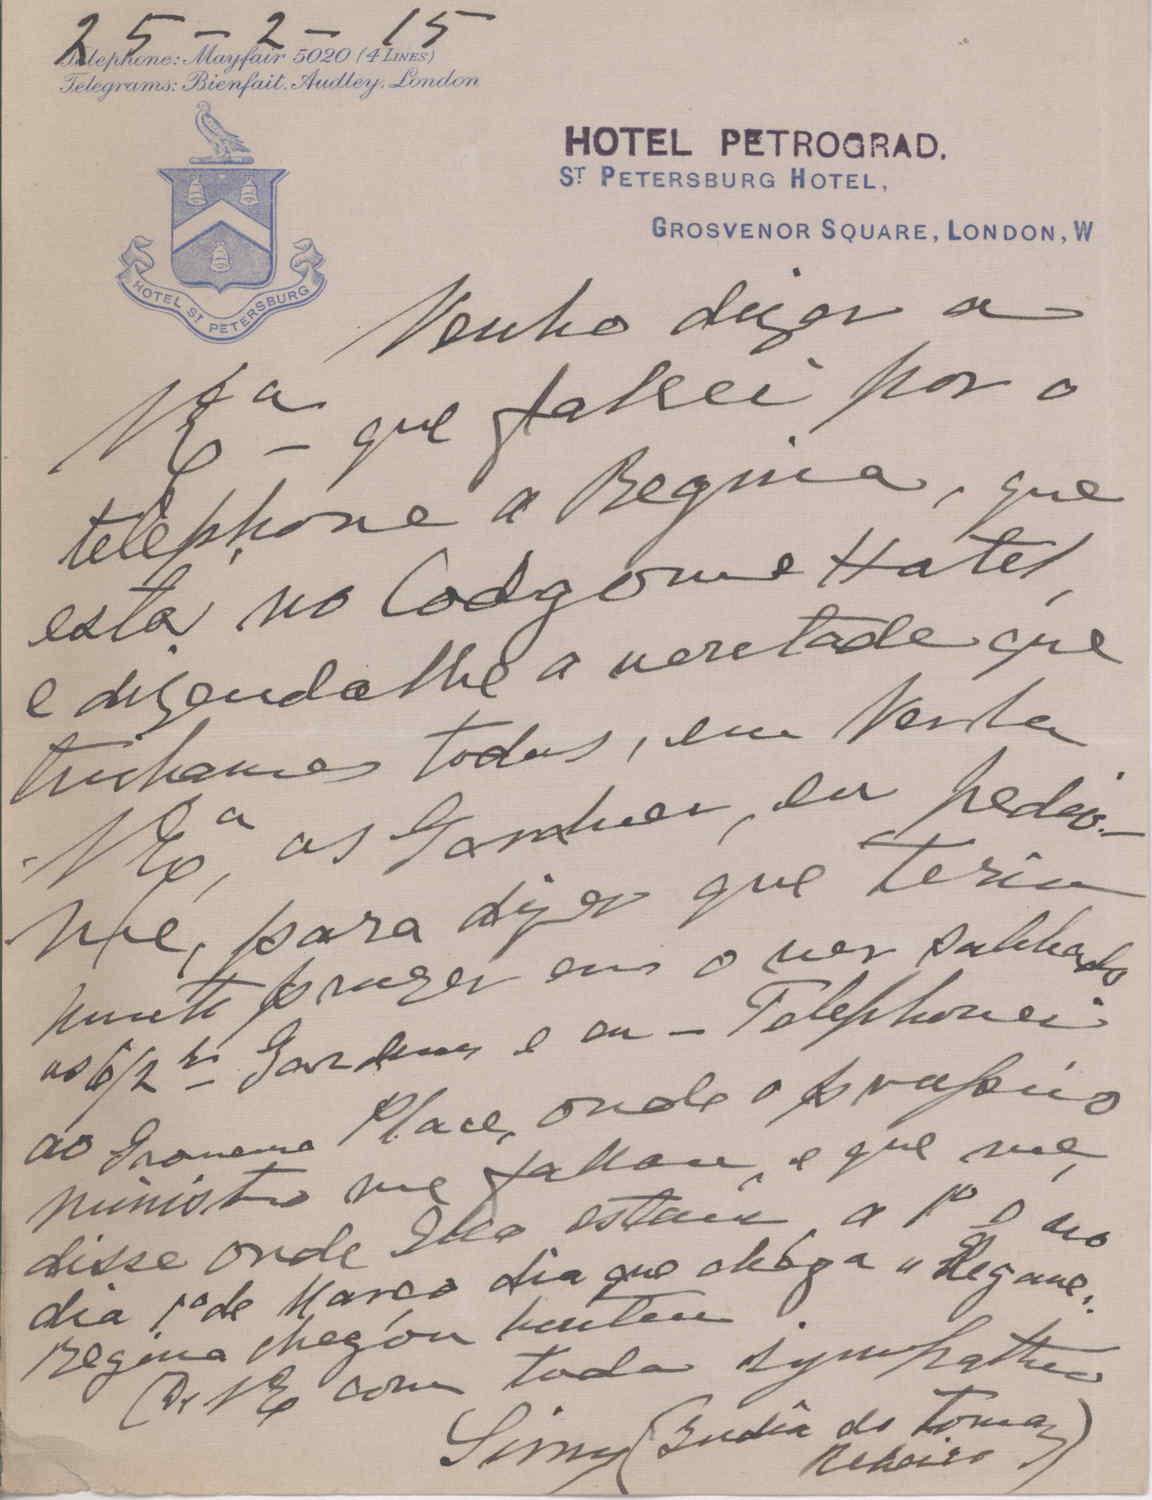 25-2-15
Telephone: Mayfair 5020 (4 Lines)
Telegrams: Bienfait. Audley. London
HOTEL PETROGRAD.
St PETERSBURG HOTEL,
GROSVENOR SQUARE, LONDON, W
HOTEL ST PETERSBURG
Venho dizer a
V Exª – que fallei por o
telephone a Regina, que
está no Hotel,
e dizendo lhe a verdade que
tinhamos todos, em
V Exª, as eu pedio-
me, para dizer que teria
muito prazer em o ver sabbado
as 6/2 hs – e eu – Telephonei
ao Place, onde o proprio
ministro me fallou, e que me
disse onde estava, a 1º é no
dia 1º de Março dia que chega a
Regina chegou hontem
De V E com toda sympathia
Simy (India do Tomaz
Ribeiro)